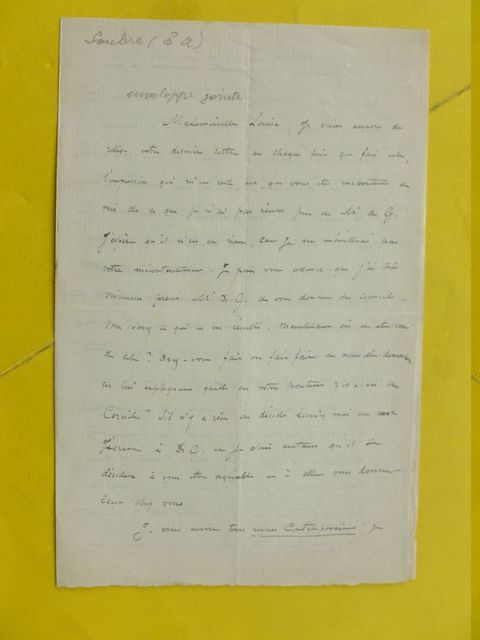 Soulere (E A)
enveloppe jointe
Mademoiselle Louise, Je viens encore de
relire votre dernière lettre et chaque fois que je fais cela,
l'impression qui m'en reste, est que vous êtes mécontente de
moi de ce que je n'ai pas réussi près de Mr de G.
J'espère qu'il n'en est rien, car je ne mériterais pas
votre mécontentement. Je puis vous assurer que j'ai très
vivement pressé Mr D. G. de vous donner des conseils.
Vous savez ce qui en est résulté. Maintenant où en êtes-vous
de cela ? Avez-vous fait ou fait faire de nouvelles démarches
en lui expliquant quelle est votre position vis-à-vis de
? S'il n'y a rien de décidé écrivez moi un mot
J'écrirai à D. G. et je suis certain qu'il se
décidera à vous être agréable et à aller vous donner
leçon chez vous.
Je vous envoie trois revues Contemporaines